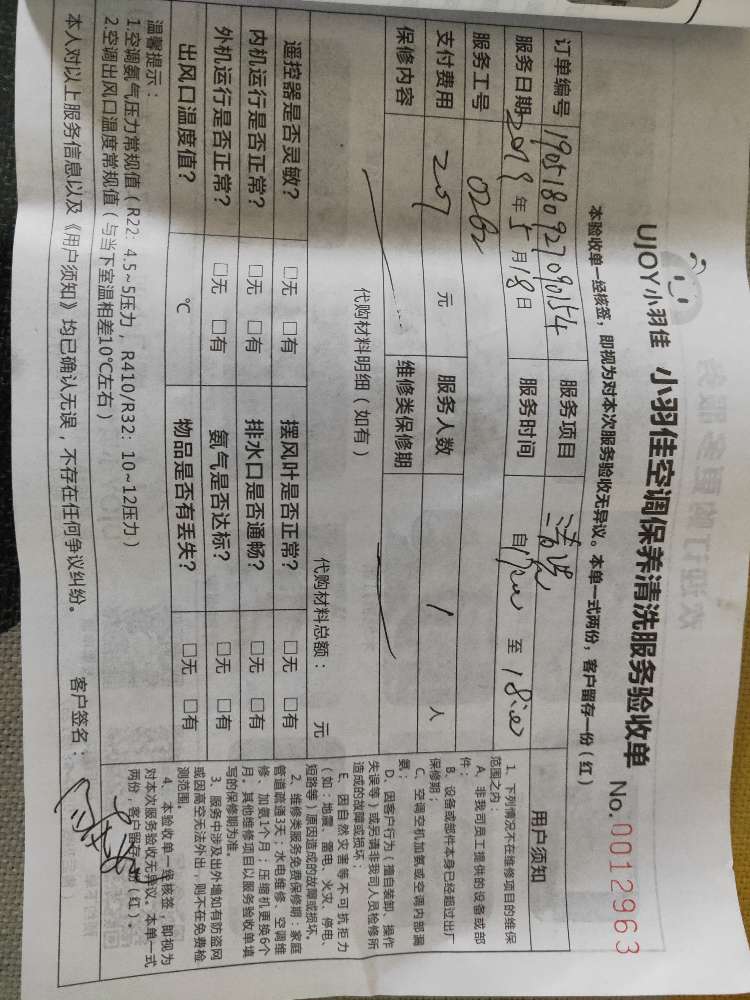 UJOY小羽佳 小羽佳空调保养清洗服务验收单 No.0012963
本验收单一经核签，即视为对本次服务验收无异议。本单一式两份，客户留存一份（红）
订单编号 190518092709054 服务项目 清洗
服务日期 2019年5月18日 服务时间 自 至
服务工号 0262
支付费用 207 元 服务人数 1 人
保修内容 维修类保修期
代购材料明细（如有）
代购材料总额： 元
遥控器是否灵敏？ □无 □有 摆风叶是否正常？ □无 □有
内机运行是否正常？ □无 □有 排水口是否通畅？ □无 □有
外机运行是否正常？ □无 □有 氨气是否达标？ □无 □有
出风口温度值？ ℃ 物品是否有丢失？ □无 □有
温馨提示：
1.空调氨气压力常规值（R22：4.5~5压力，R410/R32：10~12压力）
2.空调出风口温度常规值（与当下室温相差10℃左右）
本人对以上服务信息以及《用户须知》均已确认无误，不存在任何争议纠纷。 客户签名：
用户须知
1、下列情况不在维修项目的维保
范围之内：
A、非我司员工提供的设备或部
件；
B、设备或部件本身已经超过出厂
保修期；
C、空调空机加氨或空调内部漏
氨；
D、因客户行为（擅自装卸、操作
失误等）或另请非我司人员检修所
造成的故障或损坏；
E、因自然灾害等不可抗拒力
（如：地震、雷电、火灾、停电、
短路等）原因造成的故障或损坏。
2、维修类服务免费保修期：家庭
管道疏通3天；水电维修、空调维
修、加氨1个月；压缩机更换6个
月。其他维修项目以服务验收单填
写的保修期为准。
3、服务中涉及出外墙如有防盗网
或因高空无法外出，则不在免费检
测范围。
4、本验收单一经核签，即视为
对本次服务验收无异议。本单一式
两份，客户留存一份（红）。